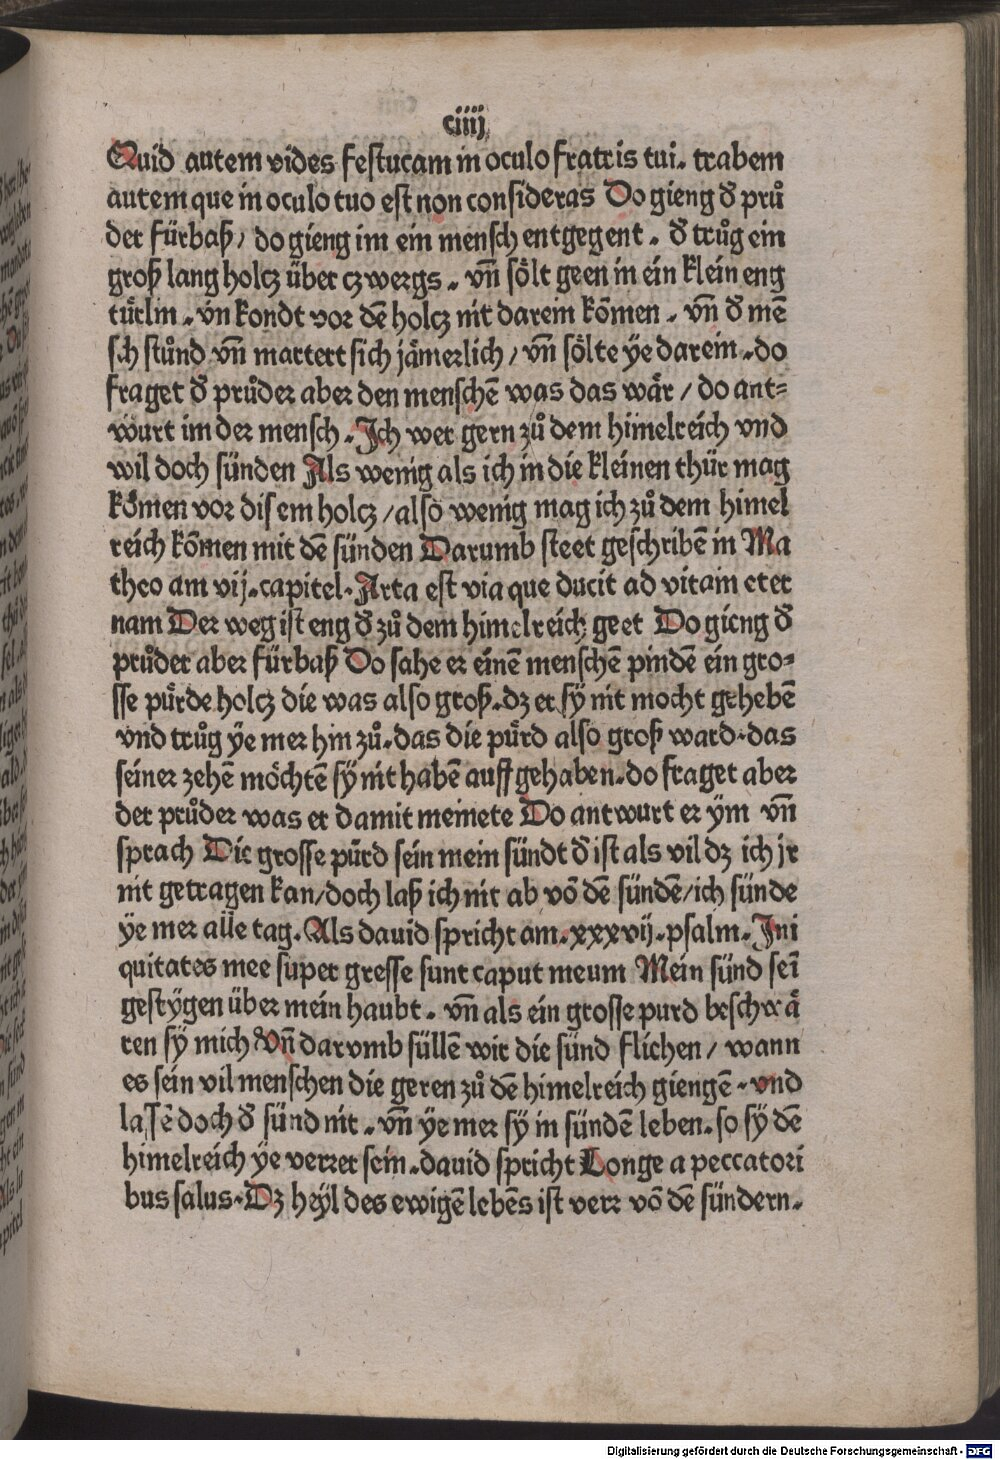 ciiij
Quid autem vides festucam in oculo fratris tui. trabem
autem que in oculo tuo est non consideras Do gieng d̕ prů
der fürbaß / do gieng im ein mensch entgegent . d̕ trůg ein
groß lang holcz über czwergs . vñ sölt geen in ein klein eng
türlin . vñ kondt vor dē holcz nit darein kōmen . vñ d̕ mē
sch stůnd vñ martert sich jämerlich / vñ sölte ÿe darein . do
fraget d̕ průder aber den menschē was das wär / do ant=
wurt im der mensch . Ich wer gern zů dem himelreich vnd
wil doch sünden Als wenig als ich in die kleinen thür mag
kōmen vor disem holcz / also wenig mag ich zů dem himel
reich kōmen mit dē sünden Darumb steet geschribē in Ma
theo am vij. capitel. Arta est via que ducit ad vitam eter
nam Der weg ist eng d̕ zů dem himelreich geet Do gieng d̕
průder aber fürbaß Do sahe er einē menschē pindē ein gro=
sse pürde holcz die was also groß. dz er sÿ nit mocht gehebē
vnd trůg ÿe mer hin zů. das die pürd also groß ward. das
seiner zehē möchtē sÿ nit habē auff gehaben. do fraget aber
der průder was er damit meinete Do antwurt er ÿm vñ
sprach Die grosse pürd sein mein sündt d̕ ist als vil dz ich jr
nit getragen kan / doch laß ich nit ab vō dē sündē / ich sünde
ÿe mer alle tag. Als dauid spricht am. xxxvij. psalm. Ini
quitates mee super gresse sunt caput meum Mein sünd seī
gestÿgen über mein haubt . vñ als ein grosse purd beschwä
ren sÿ mich Vñ darvmb süllē wir die sünd fliehen / wann
es sein vil menschen die geren zů dē himelreich giengē . vnd
lassē doch d̕ sünd nit . vñ ÿe mer sÿ in sündē leben. so sÿ dē
himelreich ÿe verrer sein. dauid spricht Longe a peccatori
bus salus. Dz heÿl des ewigē lebēs ist verr vō dē sündern.
Digitalisierung gefördert durch die Deutsche Forschungsgemeinschaft - DFG